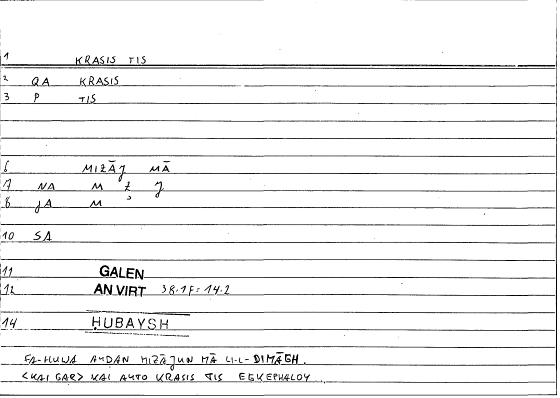 1 KRASIS TIS
2 QA KRASIS
3 P TIS
6 MIZĀJ MĀ
7 NA M Z J
8 JA M
10 SA
11 GALEN
12 AN VIRT 38.1F = 14.2
14 ḤUBAYSH
FA-HUWA AYḌAN MIZĀJUN MĀ LI-L-DIMĀGH.
<KAI GAR> KAI AUTO KRASIS TIS EGKEPHALOY